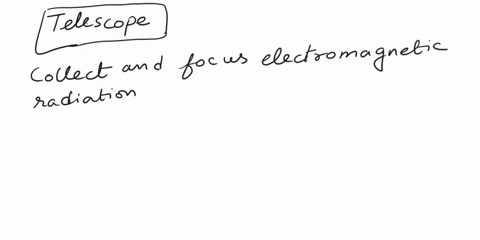 Telescope
Collect and focus electromagnetic
radiation